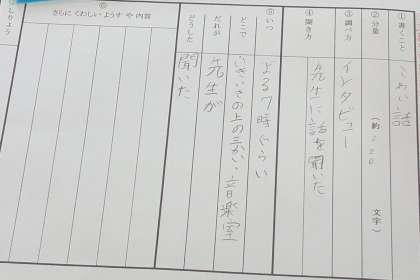 ①書くこと
こわい話
②分量
(約120文字)
③調べ方
インタビュー
④聞き方
先生に話を聞いた
⑤いつ
よる7時ぐらい
どこで
いきいきの上の3かい音楽室
だれが
先生が
どうした
聞いた
⑥
さらにくわしいようすや内容